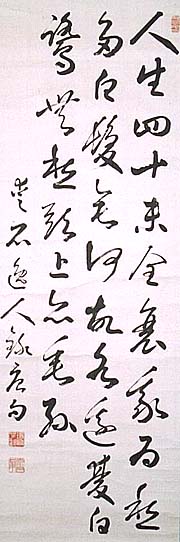 人生四十未全衰我為愁
多白髮垂何故水邊雙白
鷺無愁頭上亦垂絲
石逸人錄唐句